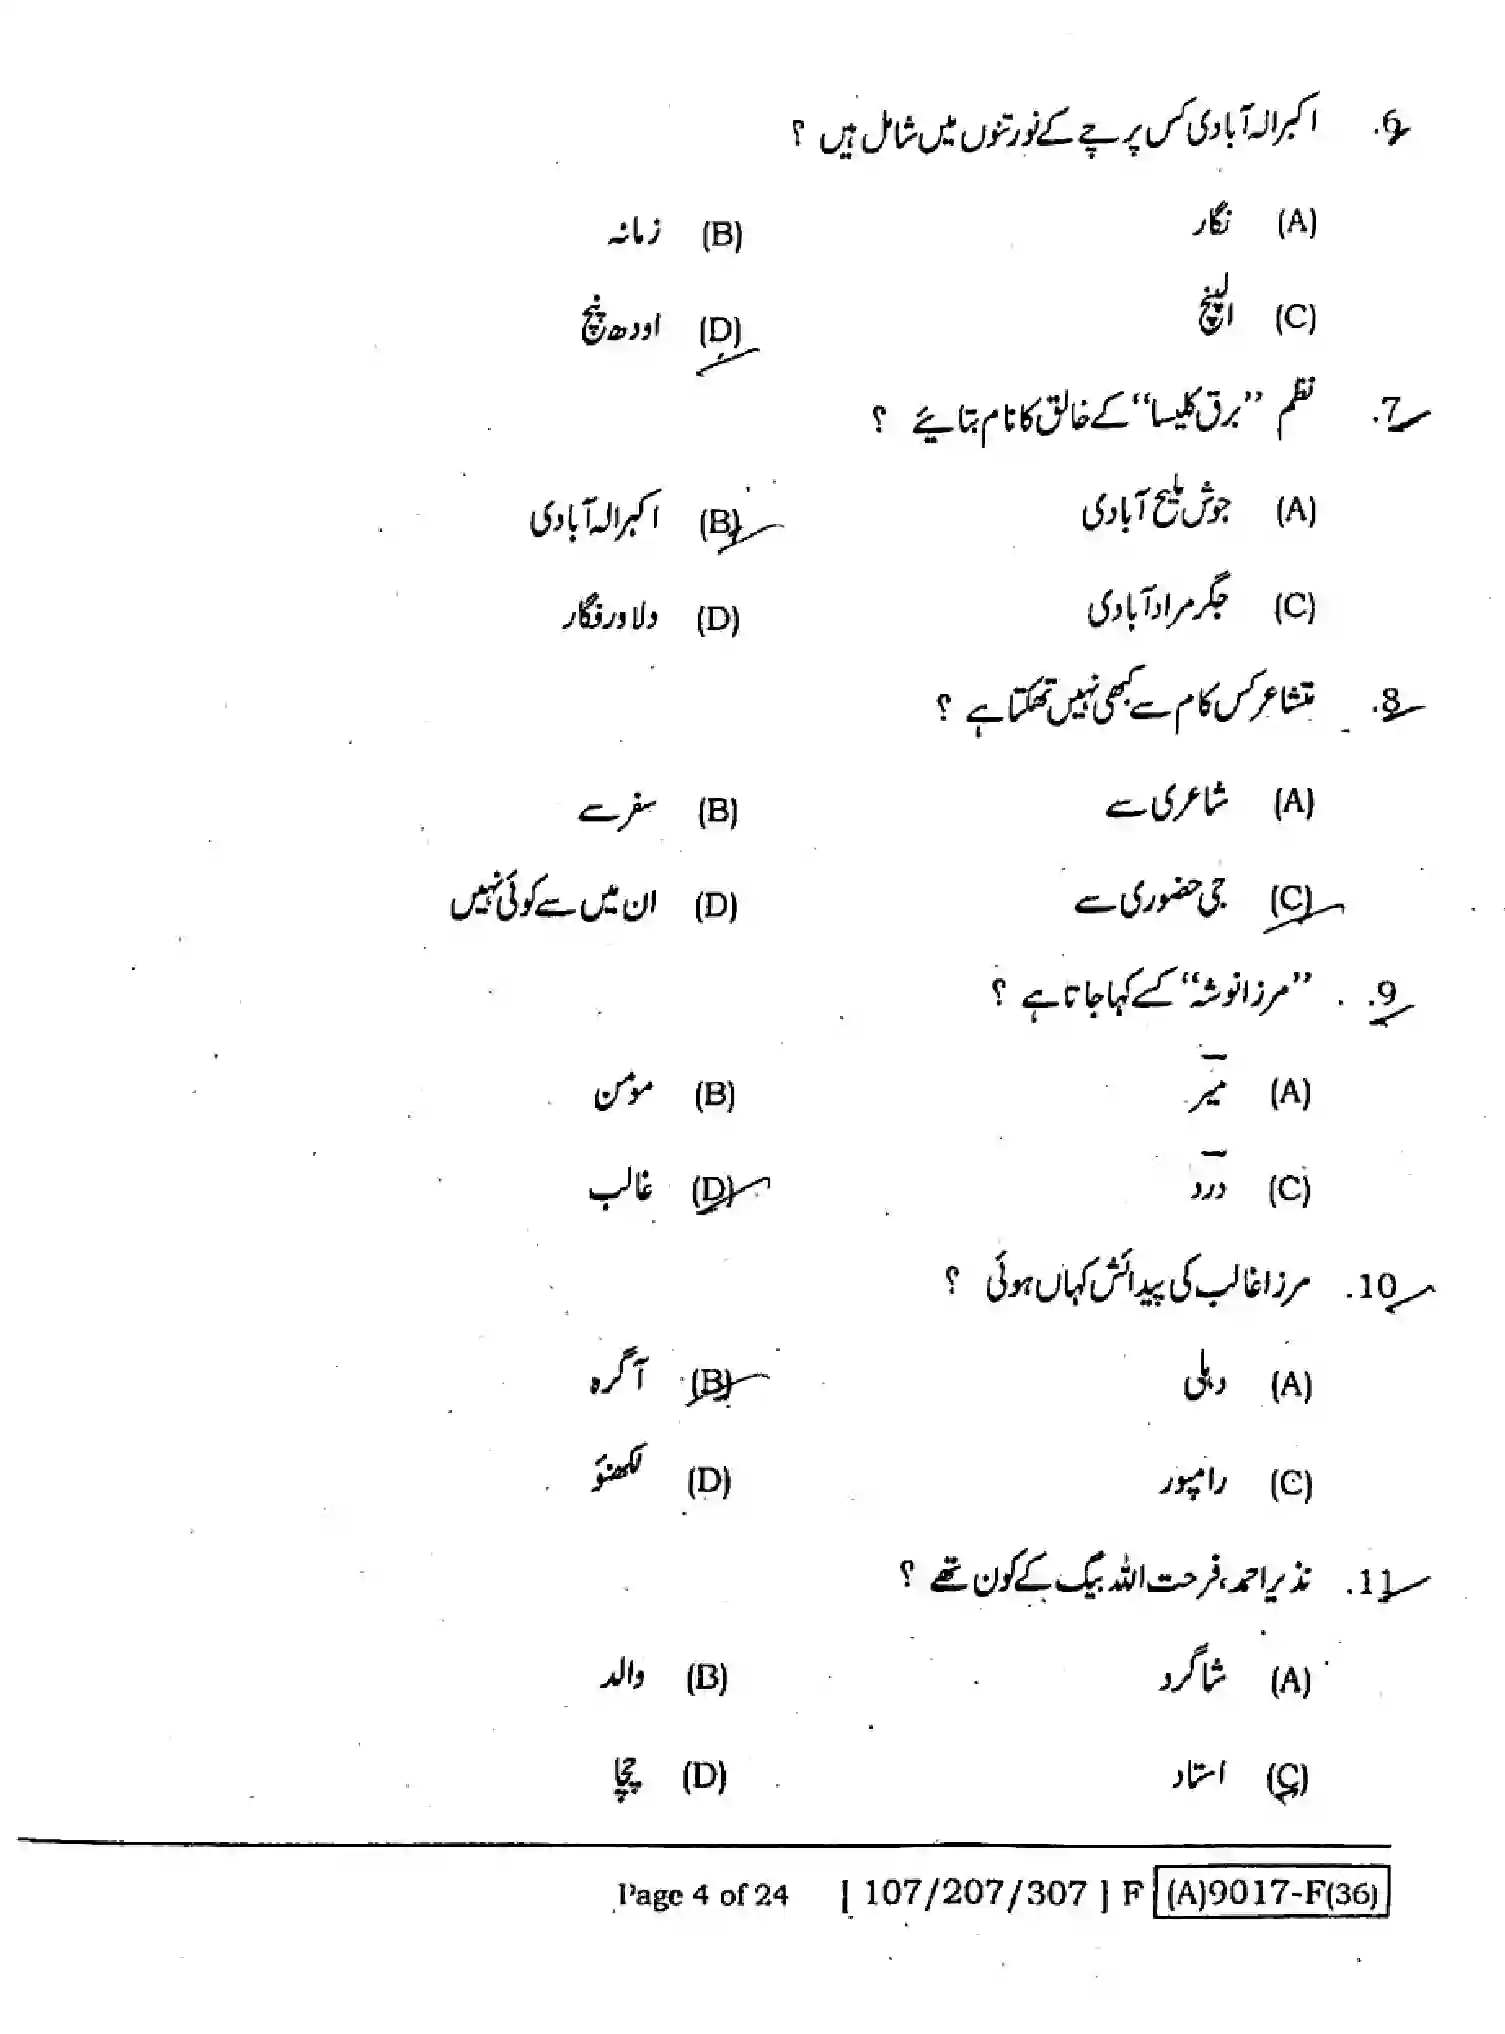 6. اکبر الہ آبادی کس پرچے کے نورتنوں میں شامل ہیں ؟
(A) نگار (B) زمانہ
(C) الپنچ (D) اودھ پنچ
7. نظم ”برق کلیسا“ کے خالق کا نام بتائیے ؟
(A) جوش ملیح آبادی (B) اکبر الہ آبادی
(C) جگر مراد آبادی (D) دلاور فگار
8. متشاعر کس کام سے کبھی نہیں تھکتا ہے ؟
(A) شاعری سے (B) سفر سے
(C) جی حضوری سے (D) ان میں سے کوئی نہیں
9. ”مرزا نوشہ“ کسے کہا جاتا ہے ؟
(A) میر (B) مومن
(C) درد (D) غالب
10. مرزا غالب کی پیدائش کہاں ہوئی ؟
(A) دہلی (B) آگرہ
(C) رامپور (D) لکھنؤ
11. نذیر احمد، فرحت اللہ بیگ کے کون تھے ؟
(A) شاگرد (B) والد
(C) استاد (D) چچا
Page 4 of 24 [ 107/207/307 ] F (A)9017-F(36)